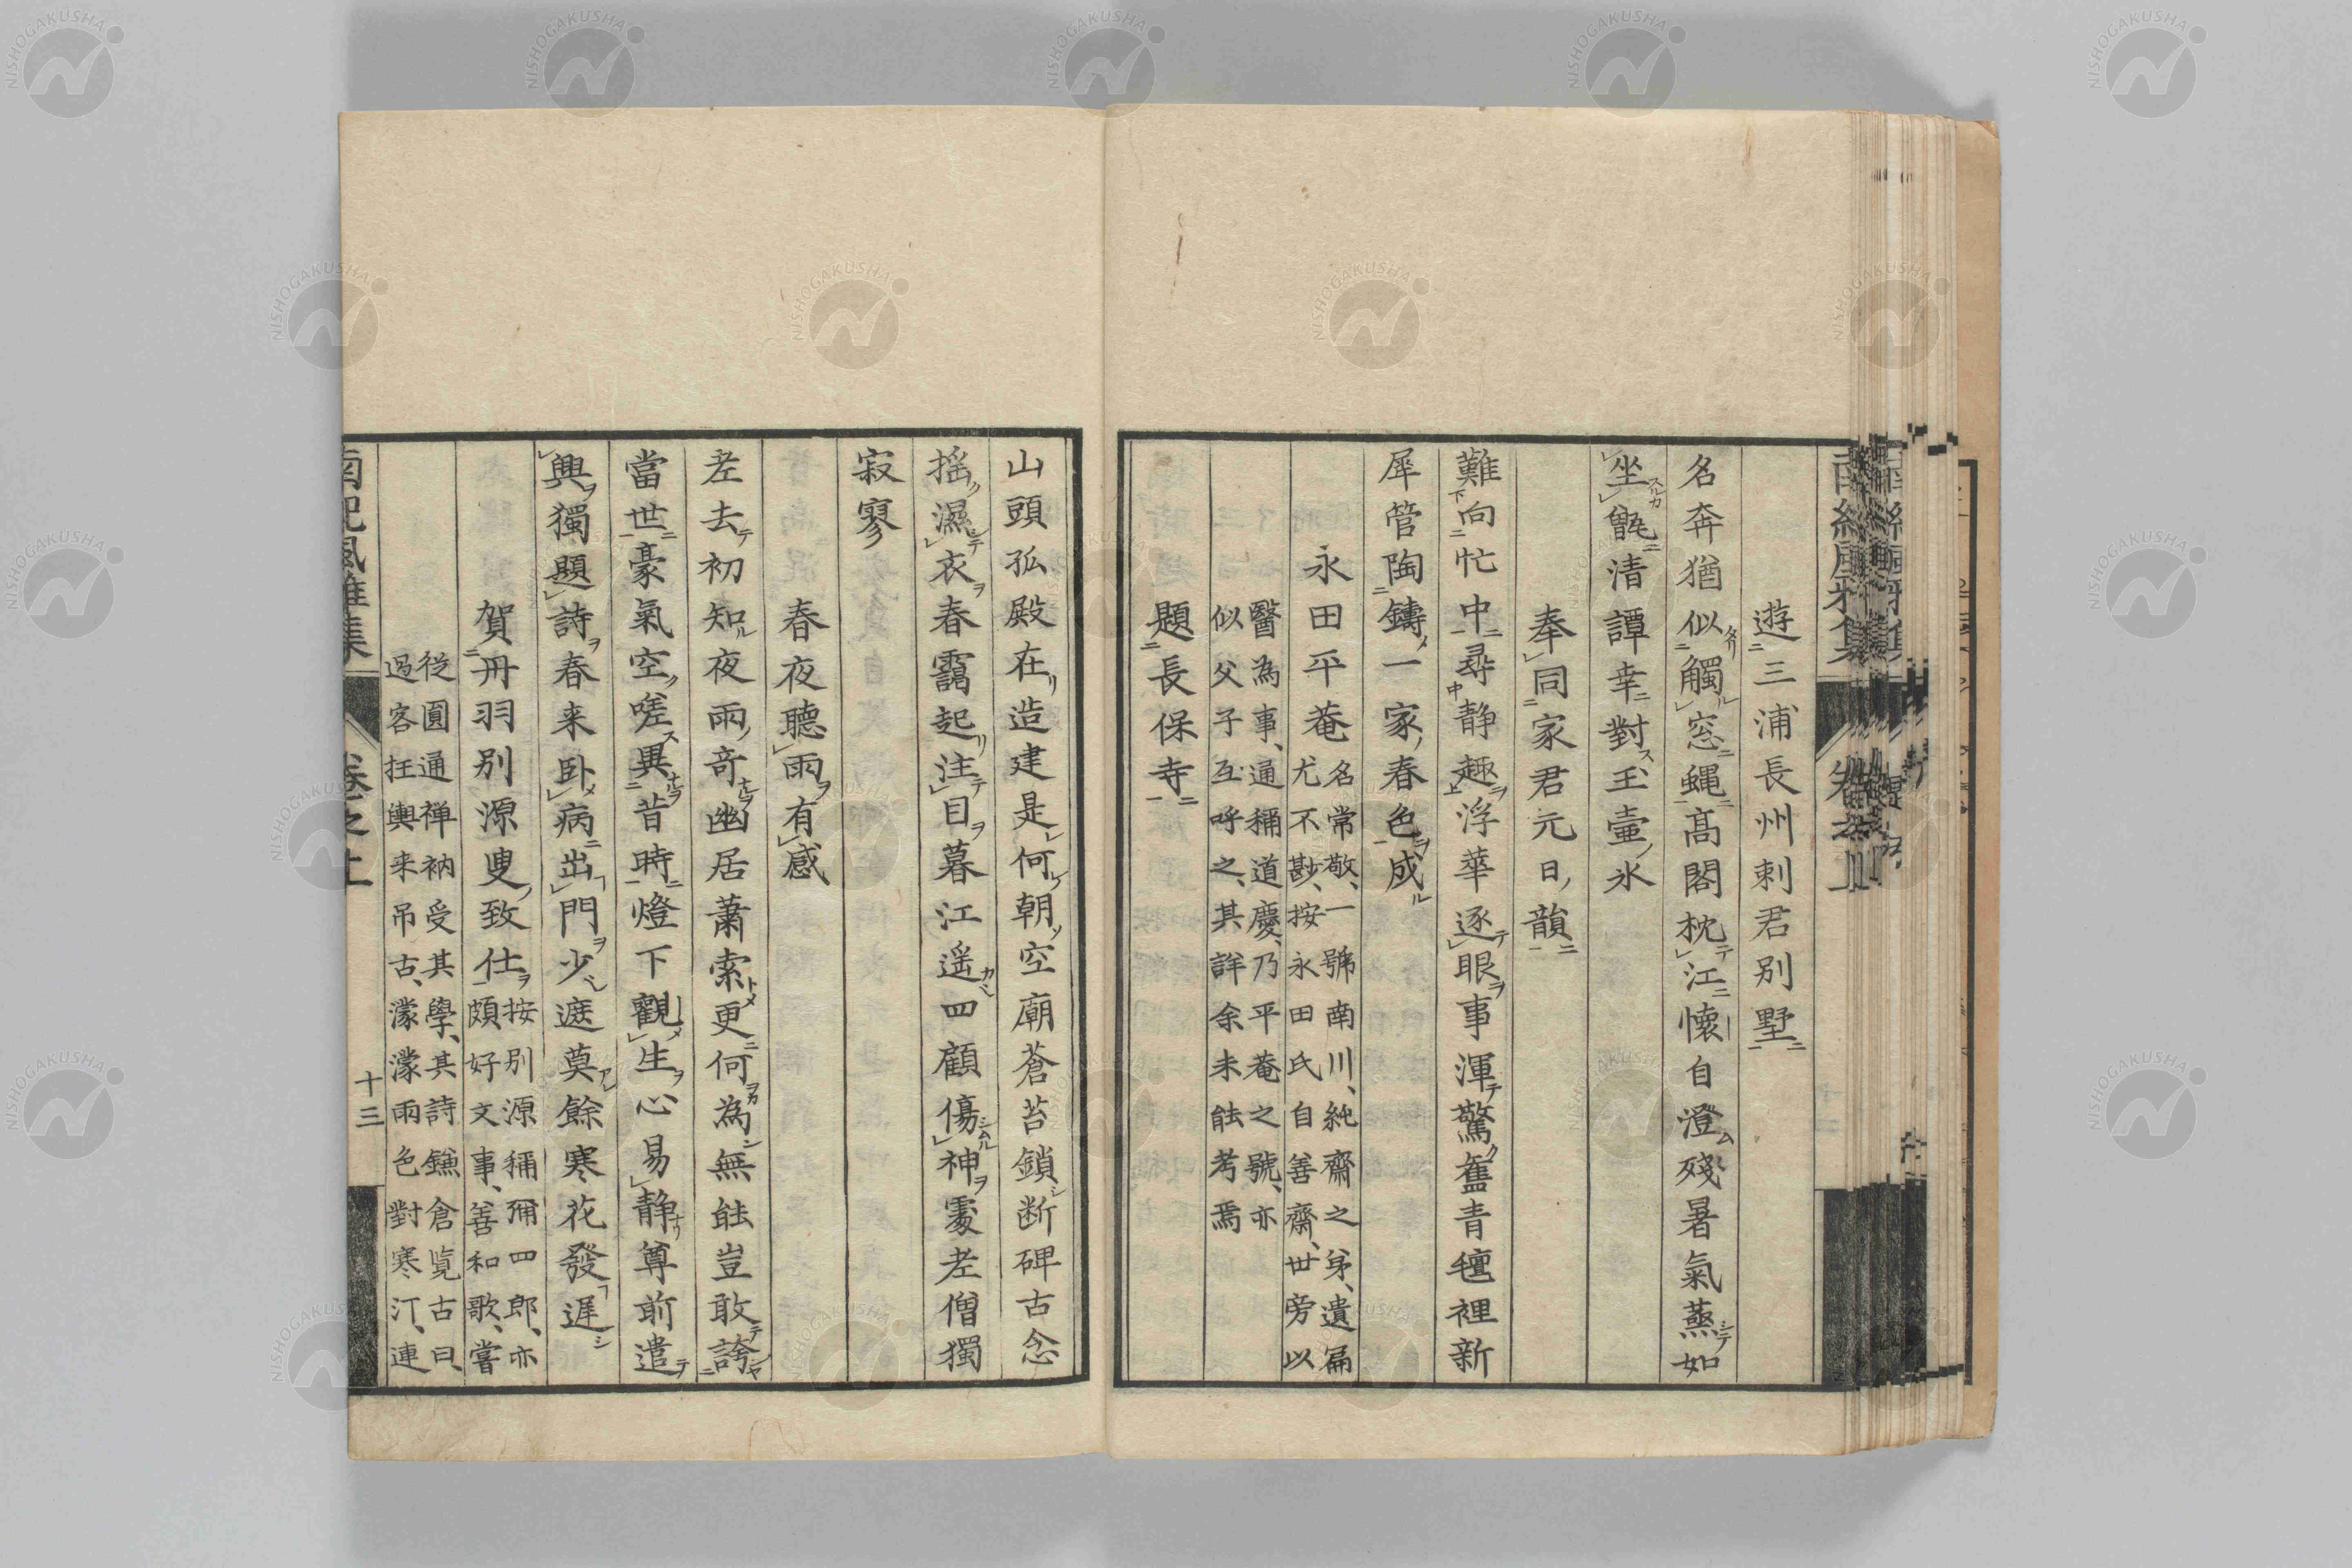 遊三浦長州刺君別墅
名奔猶似觸窓蝿髙閣枕江懐自澄殘暑氣蒸如
坐甑清譚幸對玉壷氷
奉同家君元日韻
難向忙中尋静趣浮華逐眼事渾驚舊青氊裡新
犀管陶鑄一家春色成
永田平菴
名常敬、一號南川、純齋之弟、遺篇
尤不尠、按永田氏自善齋、世旁以
醫為事、通稱道慶、乃平菴之號、亦
似父子互呼之、其詳余未能考焉
題長保寺
山頭孤殿在造建是何朝空廟蒼苔鎖断碑古念
揺濕衣春靄起注目暮江遥四顧傷神處老僧獨
寂寥
春夜聽雨有感
老去初知夜雨奇幽居蕭索更何為無能豈敢誇
當世豪氣空嗟異昔時燈下觀生心易静尊前遣
興獨題詩春来卧病出門少遮莫餘寒花發遅
賀丹羽別源叟致仕
按別源稱彌四郎、亦
頗好文事、善和歌、嘗
従圓通禅衲受其學、其詩鎌倉覧古曰、
過客抂輿来吊古、濛濛雨色對寒汀、連
南紀風雅集
卷之上
十三
NISHOGAKUSHA